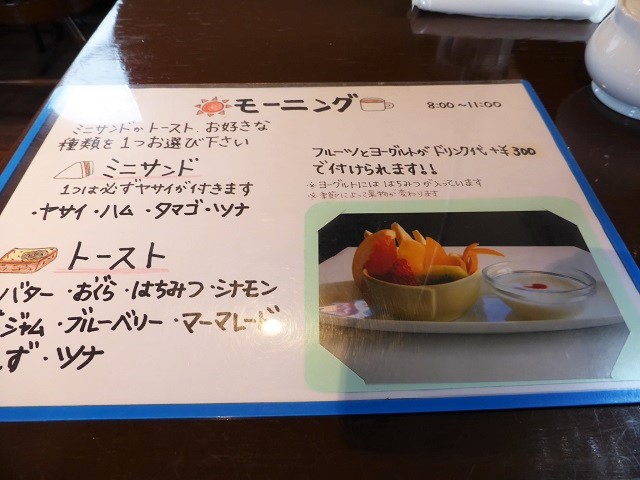 モーニング
8:00~11:00
ミニサンドかトースト、お好きな
種類を1つお選び下さい
ミニサンド
1つは必ずヤサイが付きます
・ヤサイ・ハム・タマゴ・ツナ
トースト
バター・おぐら・はちみつ・シナモン
ジャム・ブルーベリー・マーマレード
ず・ツナ
フルーツとヨーグルトがドリンク代+¥300
で付けられます!!
※ヨーグルトにははちみつが入っています
※季節によって果物が変わります